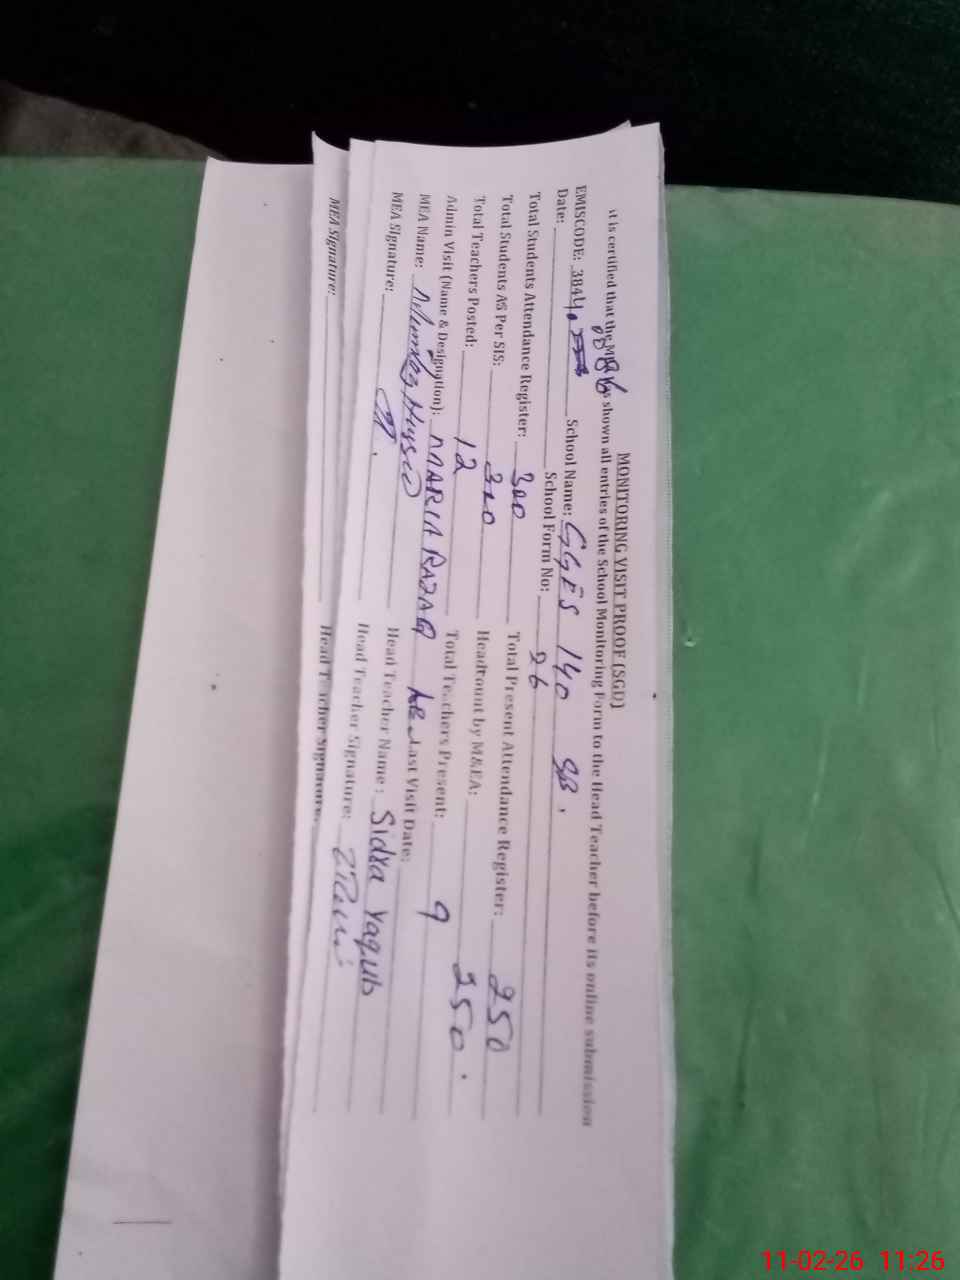 MONITORING VISIT PROOF (SGD)
It is certified that the MEA has shown all entries of the School Monitoring Form to the Head Teacher before its online submission
EMISCODE: 3844 0086 School Name: GGES 140 SB.
Date: School Form No: 26
Total Students Attendance Register: 300 Total Present Attendance Register: 250
Total Students AS Per SIS: 300 Headcount by M&EA: 250.
Total Teachers Posted: 12 Total Teachers Present: 9
Admin Visit (Name & Designation): MARIA RAZAQ Last Visit Date:
MEA Name: Head Teacher Name: Sidra Yaqub
MEA Signature: Head Teacher Signature:
MEA Signature: Head Teacher Signature:
11-02-26 11:26